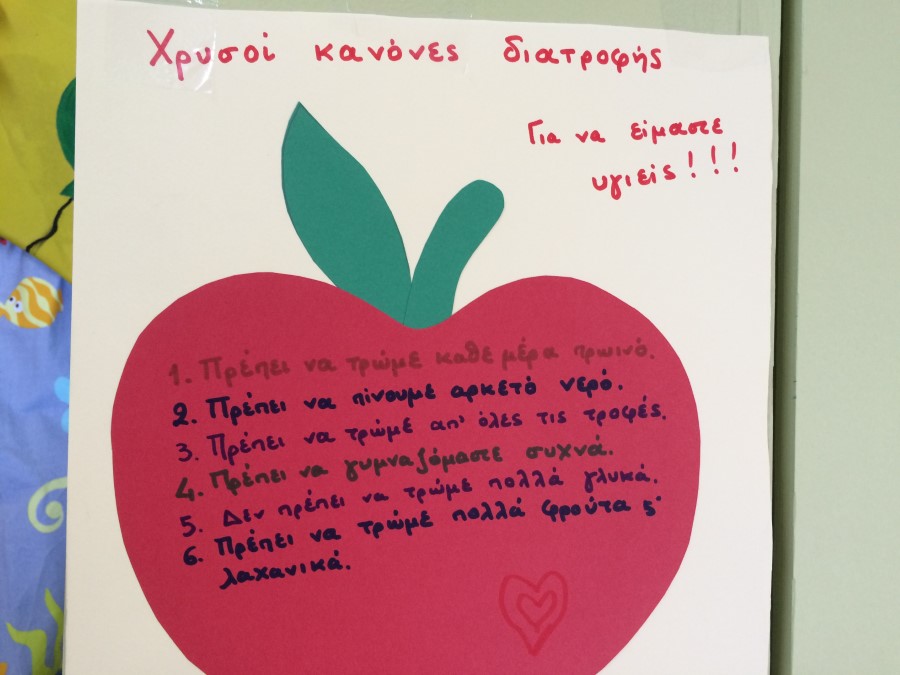 Χρυσοί κανόνες διατροφής
Για να είμαστε
υγιείς!!!
1. Πρέπει να τρώμε καθε μέρα πρωινό.
2. Πρέπει να πίνουμε αρκετό νερό.
3. Πρέπει να τρώμε απ' όλες τις τροφές.
4. Πρέπει να γυμναζόμαστε συχνά.
5. Δεν πρέπει να τρώμε πολλά γλυκά.
6. Πρέπει να τρώμε πολλά φρούτα ϛ
λαχανικά.